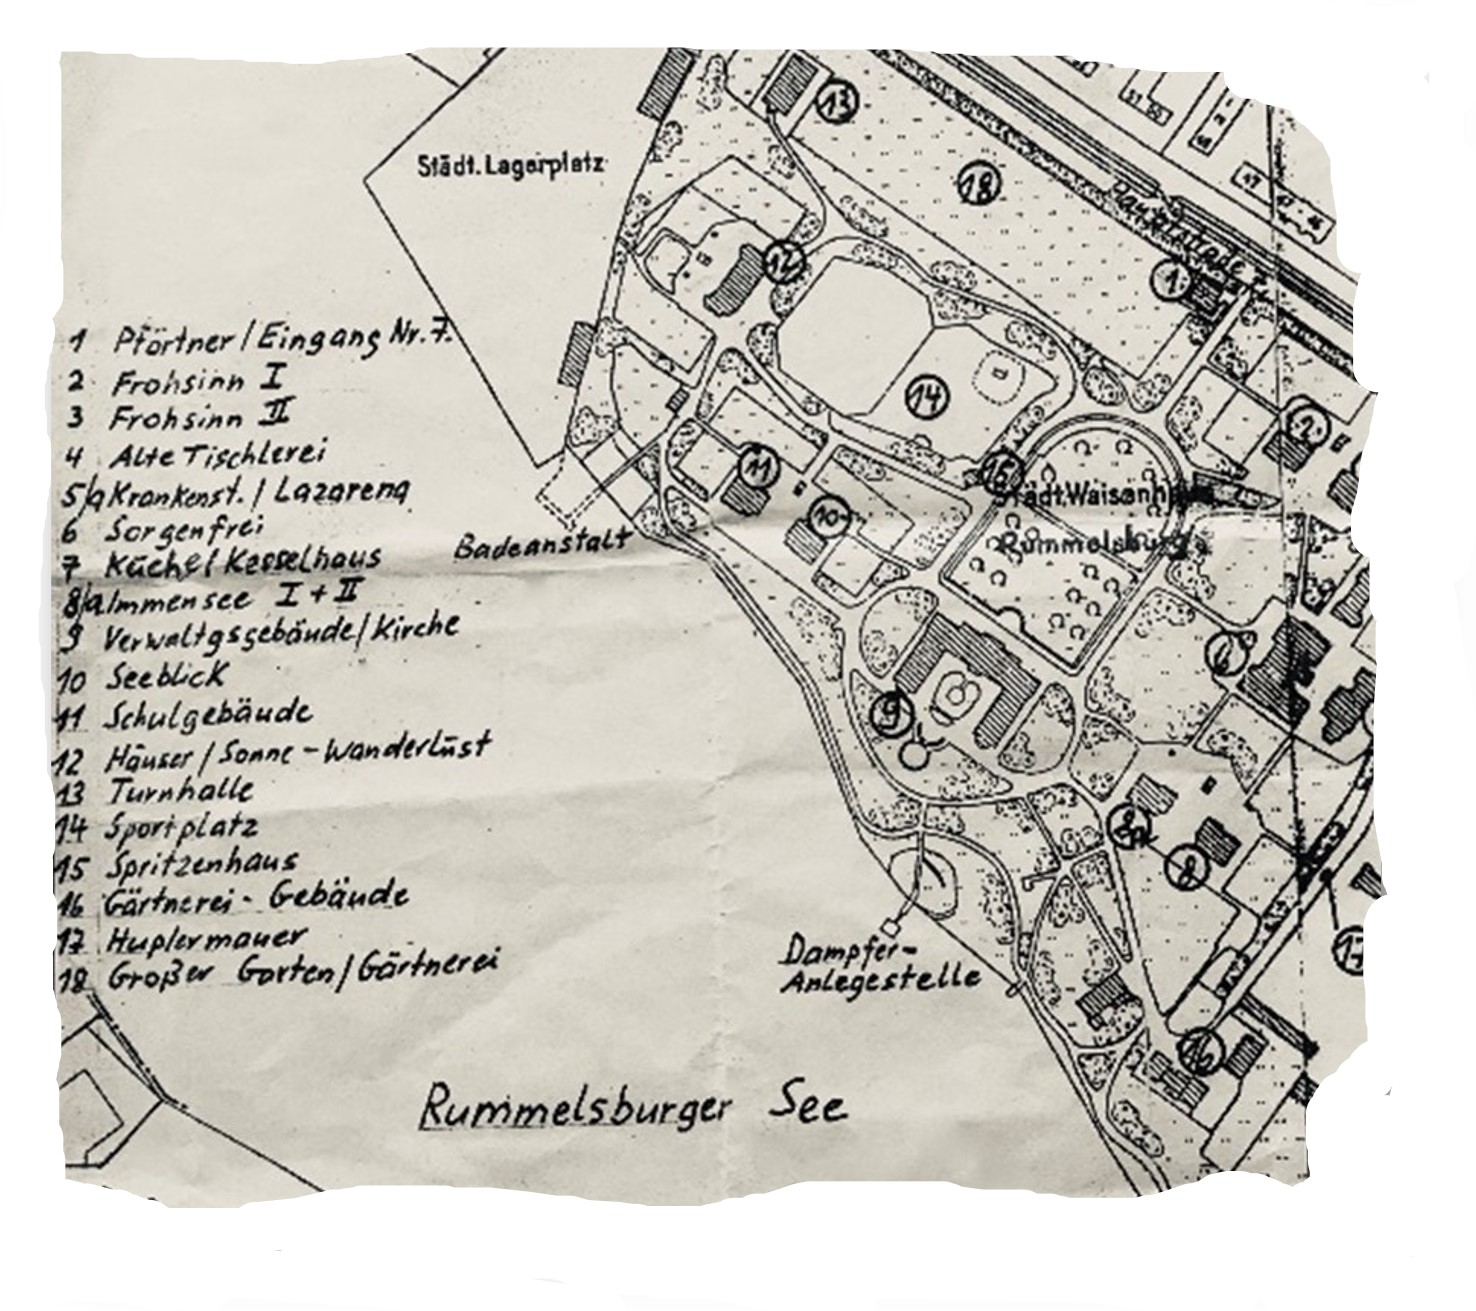 Städt. Lagerplatz
13
18
Hauptstraße
1
12
14
2
15
Städt. Waisenhaus
Rummelsburg
11
10
Badeanstalt
6
9
8a
8
17
16
Dampfer-
Anlegestelle
Rummelsburger See
1 Pförtner/Eingang Nr. 7.
2 Frohsinn I
3 Frohsinn II
4 Alte Tischlerei
5/a Krankenst./Lazarena
6 Sorgenfrei
7 Küche/Kesselhaus
8/a Immensee I + II
9 Verwaltgsgebäude/Kirche
10 Seeblick
11 Schulgebäude
12 Häuser/Sonne - Wanderlust
13 Turnhalle
14 Sportplatz
15 Spritzenhaus
16 Gärtnerei - Gebäude
17 Huplermauer
18 Großer Garten/Gärtnerei